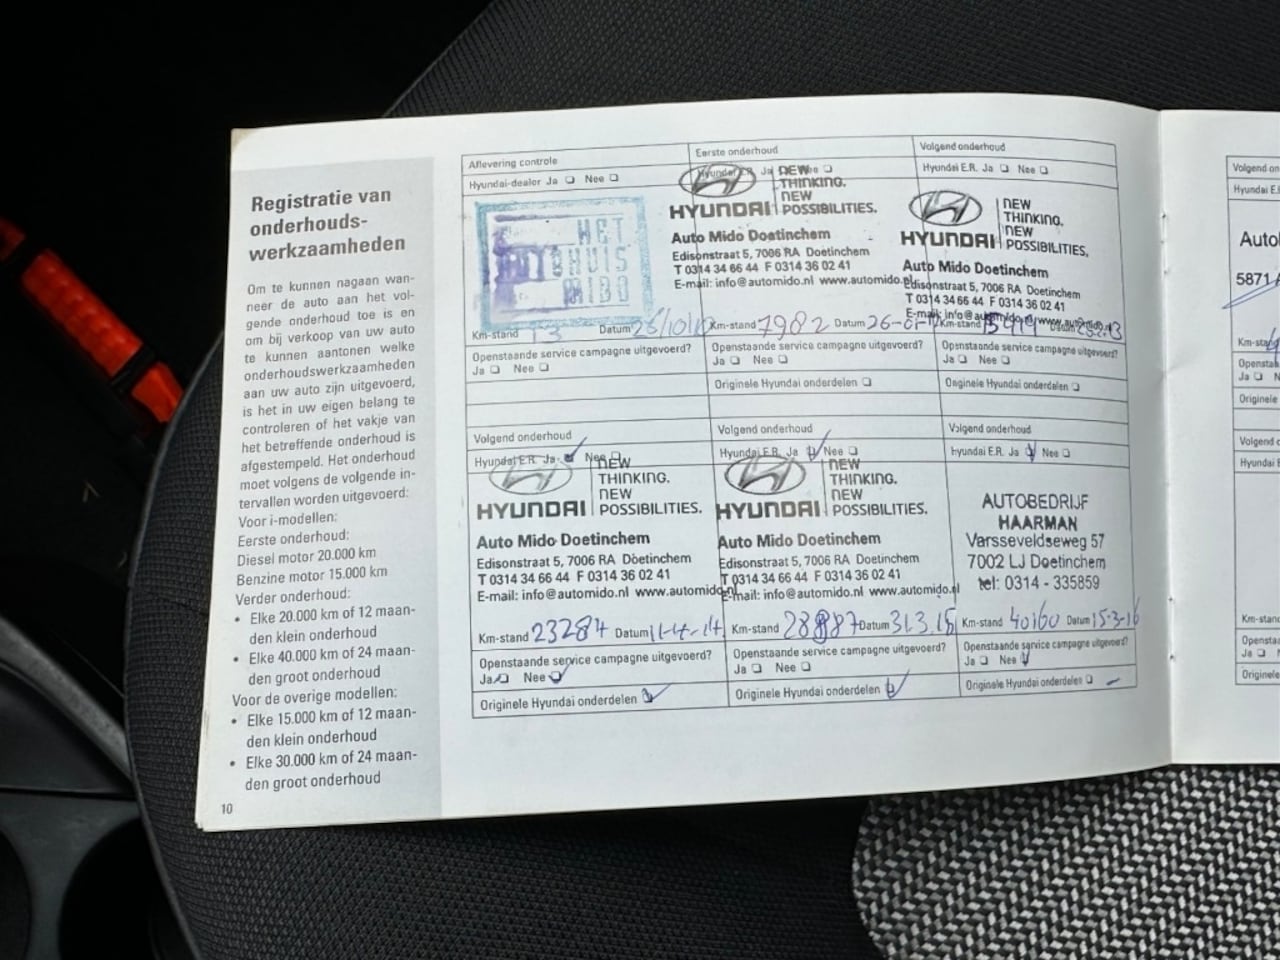 Registratie van
onderhouds-
werkzaamheden
Om te kunnen nagaan wan-
neer de auto aan het vol-
gende onderhoud toe is en
om bij verkoop van uw auto
te kunnen aantonen welke
onderhoudswerkzaamheden
aan uw auto zijn uitgevoerd,
is het in uw eigen belang te
controleren of het vakje van
het betreffende onderhoud is
afgestempeld. Het onderhoud
moet volgens de volgende in-
tervallen worden uitgevoerd:
Voor i-modellen:
Eerste onderhoud:
Diesel motor 20.000 km
Benzine motor 15.000 km
Verder onderhoud:
• Elke 20.000 km of 12 maan-
den klein onderhoud
• Elke 40.000 km of 24 maan-
den groot onderhoud
Voor de overige modellen:
• Elke 15.000 km of 12 maan-
den klein onderhoud
• Elke 30.000 km of 24 maan-
den groot onderhoud
10
Aflevering controle
Hyundai-dealer Ja ❏ Nee ❏
HET
AUTOHUIS
MIDO
Km-stand 13 Datum 26/10/
Openstaande service campagne uitgevoerd?
Ja ❏ Nee ❏
Eerste onderhoud
Hyundai E.R. Ja Nee ❏
NEW
THINKING.
NEW
HYUNDAI POSSIBILITIES.
Auto Mido Doetinchem
Edisonstraat 5, 7006 RA Doetinchem
T 0314 34 66 44 F 0314 36 02 41
E-mail: info@automido.nl www.automido.nl
Km-stand 7982 Datum 26-01-
Openstaande service campagne uitgevoerd?
Ja ❏ Nee ❏
Originele Hyundai onderdelen ❏
Volgend onderhoud
Hyundai E.R. Ja ❏ Nee ❏
NEW
THINKING.
NEW
HYUNDAI POSSIBILITIES.
Auto Mido Doetinchem
Edisonstraat 5, 7006 RA Doetinchem
T 0314 34 66 44 F 0314 36 02 41
E-mail: info@automido.nl www.automido.nl
Km-stand Datum
Openstaande service campagne uitgevoerd?
Ja ❏ Nee ❏
Originele Hyundai onderdelen ❏
Volgend onderhoud
Hyundai E.R. Ja ❏ Nee ❏
NEW
THINKING.
NEW
HYUNDAI POSSIBILITIES.
Auto Mido Doetinchem
Edisonstraat 5, 7006 RA Doetinchem
T 0314 34 66 44 F 0314 36 02 41
E-mail: info@automido.nl www.automido.nl
Km-stand 23284 Datum 11-4-14
Openstaande service campagne uitgevoerd?
Ja ❏ Nee ❏
Originele Hyundai onderdelen ❏
Volgend onderhoud
Hyundai E.R. Ja ❏ Nee ❏
NEW
THINKING.
NEW
HYUNDAI POSSIBILITIES.
Auto Mido Doetinchem
Edisonstraat 5, 7006 RA Doetinchem
T 0314 34 66 44 F 0314 36 02 41
E-mail: info@automido.nl www.automido.nl
Km-stand 28887 Datum 31.3.15
Openstaande service campagne uitgevoerd?
Ja ❏ Nee ❏
Originele Hyundai onderdelen ❏
Volgend onderhoud
Hyundai E.R. Ja ❏ Nee ❏
AUTOBEDRIJF
HAARMAN
Varsseveldseweg 57
7002 LJ Doetinchem
tel: 0314 - 335859
Km-stand 40160 Datum 15-3-16
Openstaande service campagne uitgevoerd?
Ja ❏ Nee ❏
Originele Hyundai onderdelen ❏
Volgend on
Hyundai E.
5871
Originele
Volgend o
Hyundai E
Km-stand
Openstaa
Ja ❏ N
Originele